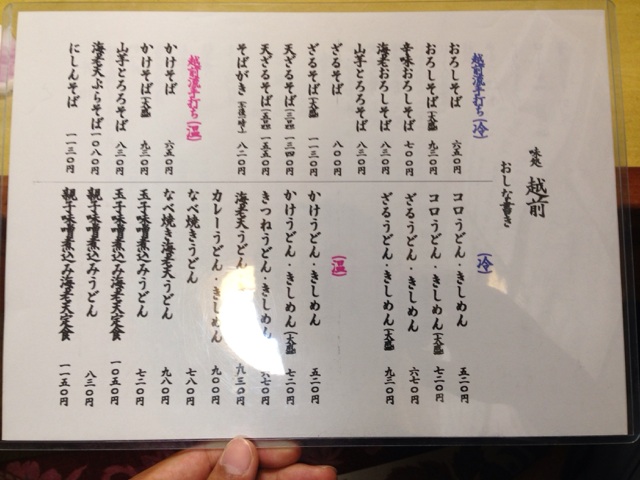 味処 越前
おしな書き
越前流手打ち(冷)
おろしそば 六五〇円
おろしそば(大盛) 九三〇円
辛味おろしそば 七〇〇円
海老おろしそば 八三〇円
山芋とろろそば 八三〇円
ざるそば 八〇〇円
ざるそば(大盛) 一一三〇円
天ざるそば 一三四〇円
天ざるそば 一五五〇円
そばがき 八二〇円
越前流手打ち(温)
かけそば 六五〇円
かけそば(大盛) 九三〇円
山芋とろろそば 八三〇円
海老天ぷらそば 一〇八〇円
にしんそば 一一三〇円
(冷)
コロうどん・きしめん 五二〇円
コロうどん・きしめん(大盛) 七二〇円
ざるうどん・きしめん 六七〇円
ざるうどん・きしめん(大盛) 九三〇円
(温)
かけうどん・きしめん 五二〇円
かけうどん・きしめん(大盛) 七二〇円
きつねうどん・きしめん 六七〇円
海老天うどん・きしめん 九三〇円
カレーうどん・きしめん 九〇〇円
なべ焼きうどん 七八〇円
なべ焼き海老天うどん 九八〇円
玉子味噌煮込みうどん 七二〇円
玉子味噌煮込み海老天定食 一〇五〇円
親子味噌煮込みうどん 八三〇円
親子味噌煮込み海老天定食 一一五〇円